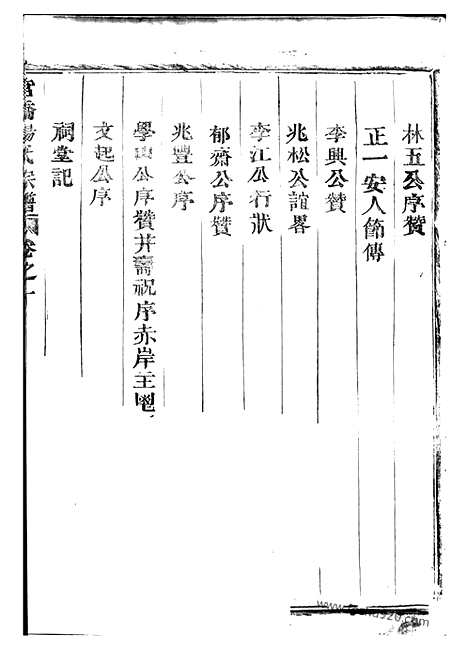 林五公序贊
正一安人節傳
李興公贊
兆松公誼畧
李江公行狀
郁齋公序贊
兆豐公序
學山公序贊并壽祝序赤岸主鬯
文起公序
祠堂記
官橋楊氏宗譜 卷之一